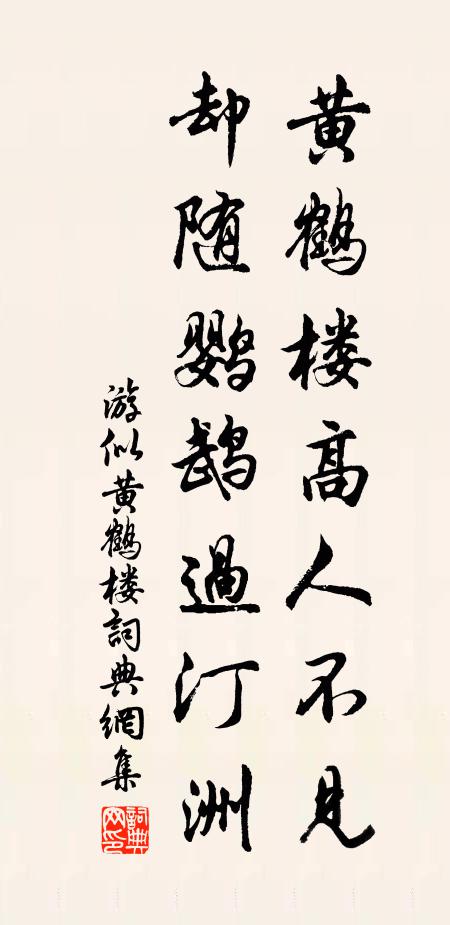 黄鹤楼高人不见
却随鹦鹉過汀洲
游似黄鹤楼詞典網集
詞典網印